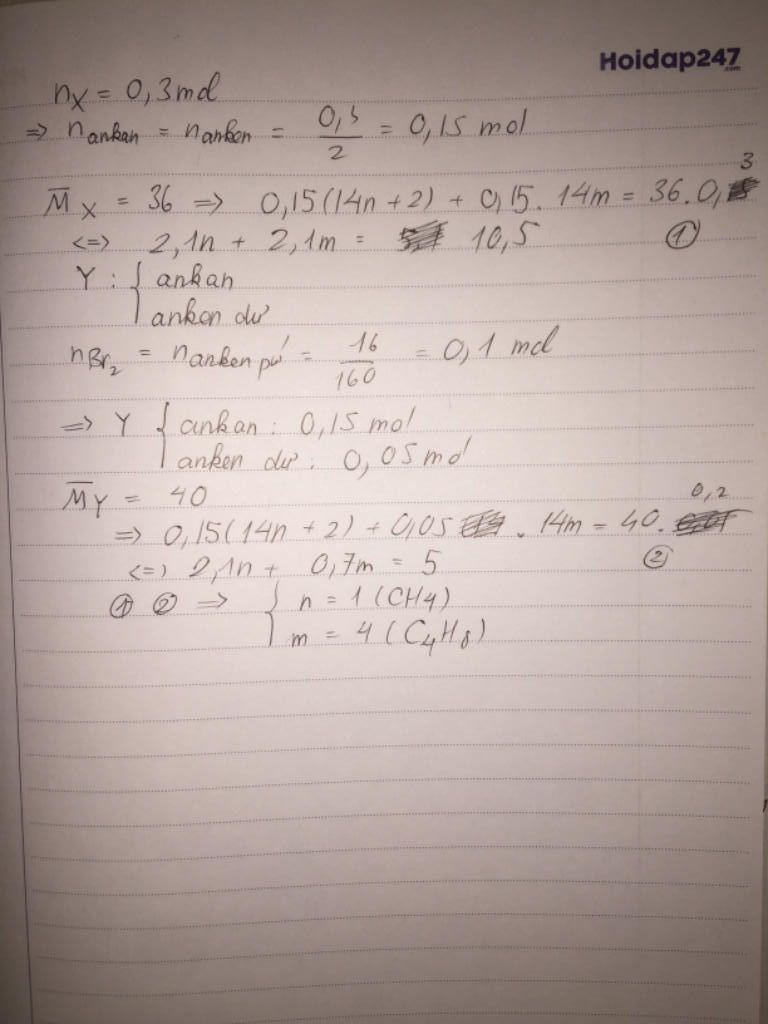 Hoidap247
.com
nX = 0,3 mol
=> nankan = nanken = 0,3/2 = 0,15 mol
M̅X = 36 => 0,15(14n + 2) + 0,15. 14m = 36. 0,3
<=> 2,1n + 2,1m = 10,5 ①
Y : { ankan
anken dư
nBr2 = nanken pứ = 16/160 = 0,1 mol
=> Y { ankan : 0,15 mol
anken dư : 0,05 mol
M̅Y = 40
=> 0,15(14n + 2) + 0,05 . 14m = 40. 0,2
<=> 2,1n + 0,7m = 5 ②
① ② => { n = 1 (CH4)
m = 4 (C4H8)